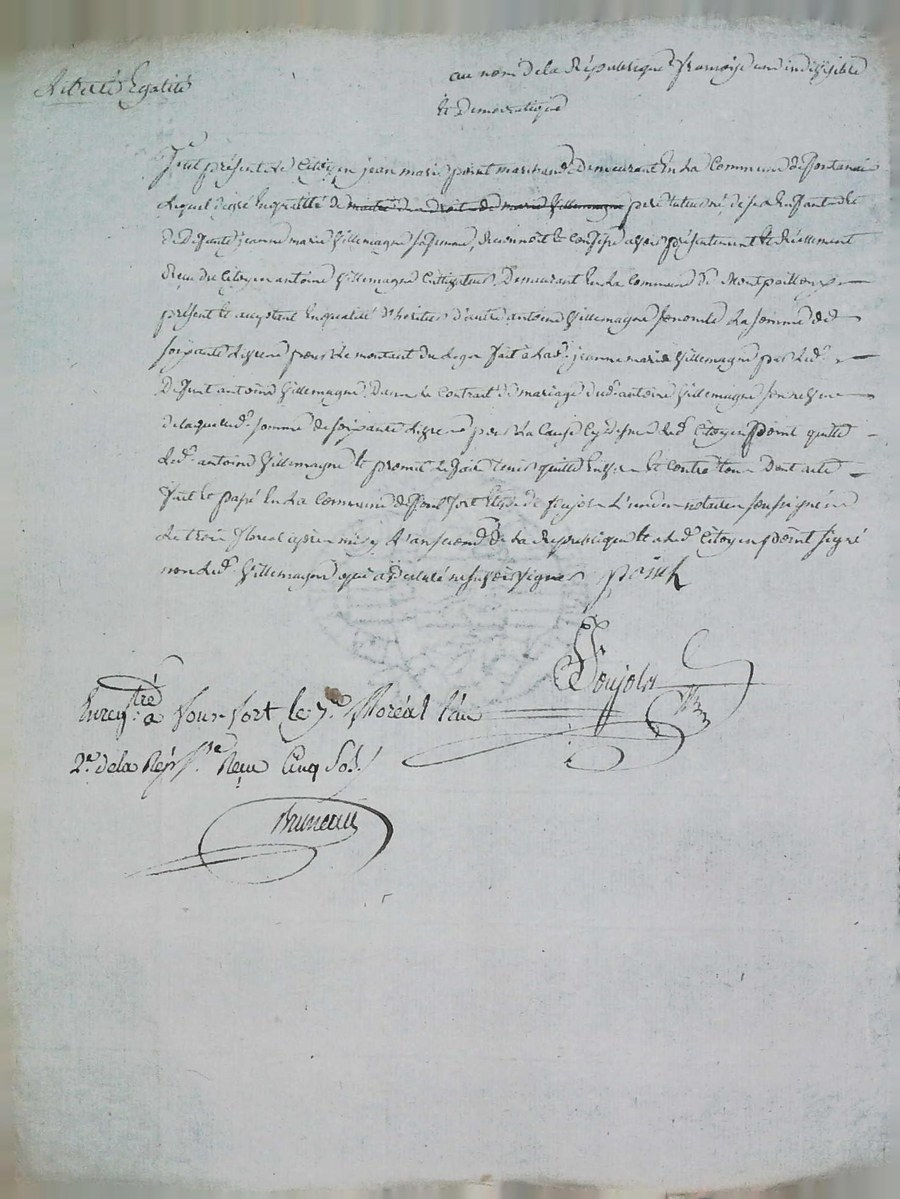 Liberté Egalité
au nom de la République françoise une indivisible
et Democratique
fut présent Le Citoyen jean marie point marchand Demeurant En La Commune de
Lequel de gré En qualité de pere tuteur de ses Enfants et
de Defunte jeanne marie Villemagne sa femme, Reconnoit et Confesse avoir présentement et Réellement
Reçu du Citoyen antoine Villemagne Cultivateur Demeurant En La Commune de
présent et acceptant En qualité d'heritier d'autre antoine Villemagne La somme de
soixante Livres pour Le montant du Legs fait à Lad. jeanne marie Villemagne par Led.
Defunt antoine Villemagne Dans le Contrat de mariage dud. antoine Villemagne
de laquelle somme de soixante Livres pour La Cause Cy dessus Led. Citoyen point quitte
Led. antoine Villemagne et promet Le faire tenir quitte Envers et Contre tous Dont acte
fait et passé En La Commune de fort de L'un des notaires soussignés
Le trois floreal L'an second de La Republique et a Led. Citoyen point signé
non Led. Villemagne qui a Déclaré ne savoir signer point
Soujolx
Enregtré à four fort le 7e floréal l'an
2e de la Rép. fse Reçu Cinq Sols
Bruneau